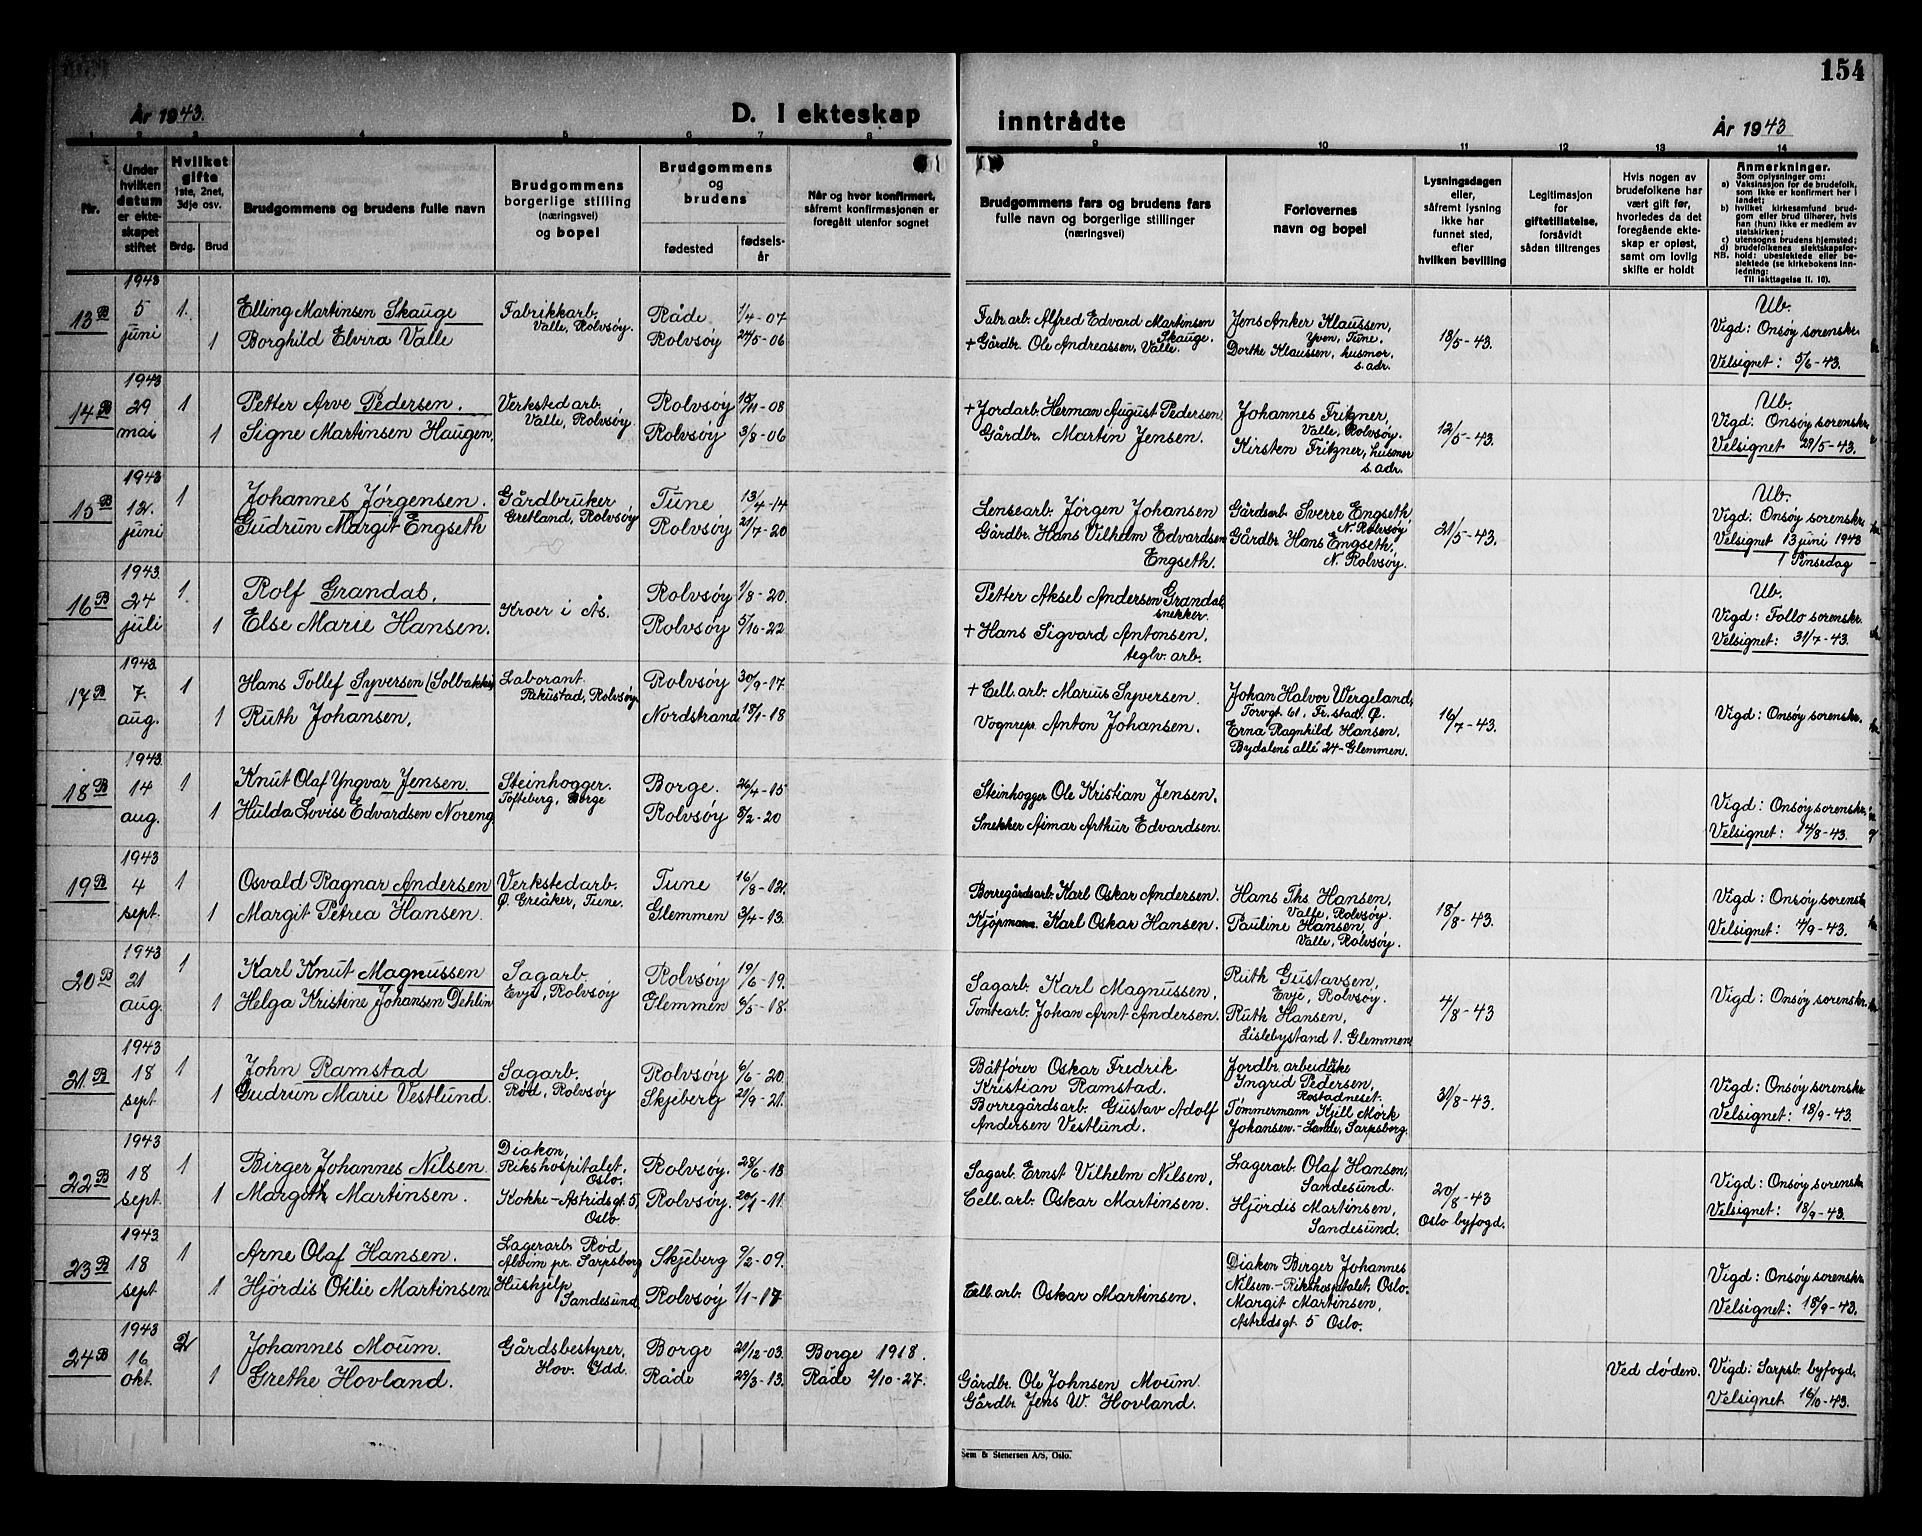 154
År 1943.
D. I ekteskap
inntrådte
År 1943
1 2 3 4 5 6 7 8 9 10 11 12 13 14
Nr.
Under
hvilken
datum
er ekte-
skapet
stiftet
Hvilket
gifte
1ste, 2net,
3dje osv.
Brdg.
Brud
Brudgommens og brudens fulle navn
Brudgommens
borgerlige stilling
(næringsvei)
og bopel
Brudgommens
og
brudens
fødested
fødsels-
år
Når og hvor konfirmert,
såfremt konfirmasjonen er
foregått utenfor sognet
Brudgommens fars og brudens fars
fulle navn og borgerlige stillinger
(næringsvei)
Forlovernes
navn og bopel
Lysningsdagen
eller,
såfremt lysning
ikke har
funnet sted,
efter
hvilken bevilling
Legitimasjon
for
giftetillatelse,
forsåvidt
sådan tiltrenges
Hvis nogen av
brudefolkene har
vært gift før,
hvorledes da det
foregående ekte-
skap er opløst,
samt om lovlig
skifte er holdt
Anmerkninger.
Som oplysninger om:
a) Vaksinasjon for de brudefolk,
som ikke er konfirmert her i
landet;
b) hvilket kirkesamfund brud-
gom eller brud tilhører, hvis
han (hun) ikke er medlem av
statskirken;
c) utensogns brudens hjemsted;
d) brudefolkenes slektskapsfor-
NB. hold: ubeslektede eller be-
slektede (se kirkebokens inn-
ledning:
Til iakttagelse II. 10).
13 B
1943
5
juni
1.
1
Elling Martinsen Skauge
Borghild Elvira Valle
Fabrikkarb.
Valle, Rolvsøy.
Råde 1/4-07
Rolvsøy 24/5-06
Fabr.arb. Alfred Edvard Martinsen
Skauge.
+ Gårdbr. Ole Andreassen, Valle.
Jens Anker Klaussen,
Yven, Tune.
Dorthe Klaussen, husmor,
s. adr.
18/5-43.
Ub.
Vigd: Onsøy sorenskr.
Velsignet: 5/6-43.
14 B
1943
29
mai
1
1
Petter Arve Pedersen.
Signe Martinsen Haugen,
Verkstedarb.
Valle, Rolvsøy.
Rolvsøy 15/11-08
Rolvsøy 3/8-06
+ Jordarb. Herman August Pedersen.
Gårdbr. Martin Jensen.
Johannes Fritzner,
Valle, Rolvsøy.
Kirsten Fritzner, husmor
s. adr.
12/5-43.
Ub.
Vigd: Onsøy sorenskr.
Velsignet 29/5-43.
15 B
1943
12.
juni
1
Johannes Jørgensen.
Gudrun Margit Engseth
Gårdbruker
Gretland, Rolvsøy
Tune 13/4-14
Rolvsøy 21/7-20
Lensearb. Jørgen Johansen
Gårdbr. Hans Vilhelm Edvardsen
Engseth.
Gårdsarb Sverre Engseth
N. Rolvsøy
Gårdbr Hans Engseth,
N. Rolvsøy.
21/5-43.
Ub.
Vigd: Onsøy sorenskr.
Velsignet 13 juni 1943
1 Pinsedag
16 B
1943.
24
juli
1.
1
Rolf Grandal,
Else Marie Hansen.
Kroer i Ås.
Rolvsøy 1/8-20.
Rolvsøy 5/10-22
Petter Aksel Andersen Grandal
snekker.
+ Hans Sigvard Antonsen,
teglv. arb.
Ub.
Vigd: Follo sorenskr.
Velsignet: 31/7-43.
17 B
1943.
7.
aug.
1
1
Hans Tollef Syversen (Solbakke)
Ruth Johansen,
Laborant
Rekustad, Rolvsøy
Rolvsøy 30/9-17.
Nordstrand 18/1-18
+ Cell. arb. Marius Syversen.
Vognrepr. Anton Johansen.
Johan Halvor Wergeland,
Torvgt. 61, Fr.stad Ø.
Erna Ragnhild Hansen,
Bydalens allé 24-Glemmen.
16/7-43.
Vigd: Onsøy sorenskr.
18 B
1943.
14
aug.
1
1
Knut Olaf Yngvar Jensen.
Hulda Lovise Edvardsen Noreng
Steinhogger.
Tofteberg, Borge
Borge. 26/4-15
Rolvsøy 5/2-20
Steinhogger Ole Kristian Jensen,
Snekker Aimar Arthur Edvardsen.
Vigd: Onsøy sorenskr.
Velsignet: 14/8-43.
19 B
1943
4
sept.
1
1
Osvald Ragnar Andersen
Margit Petrea Hansen.
Verkstedarb.
Ø. Greåker, Tune.
Tune 16/8-12.
Glemmen 3/4-13.
Borregårdsarb. Karl Oskar Andersen.
Kjøpmann Karl Oskar Hansen.
Hans Ths Hansen,
Valle, Rolvsøy.
Pauline Hansen,
Valle, Rolvsøy.
18/8-43.
Vigd: Onsøy sorenskr
Velsignet: 4/9-43.
20 B
1943
21
aug.
1
1
Karl Knut Magnussen
Helga Kristine Johansen Dehlin
Sagarb
Evje, Rolvsøy
Rolvsøy 19/6-19.
Glemmen 6/5-18.
Sagarb. Karl Magnussen,
Tomtearb. Johan Arnt Andersen.
Ruth Gustavsen,
Evje, Rolvsøy.
Ruth Hansen,
Lislebystand 1. Glemmen
4/8-43
Vigd: Onsøy sorenskr.
21 B
1943
18
sept.
1
1
John Ramstad
Gudrun Marie Vestlund.
Sagarb.
Rød, Rolvsøy
Rolvsøy 6/6-20.
Skjeberg 21/9-21.
Båtfører Oskar Fredrik
Kristian Ramstad.
Borregårdsarb. Gustav Adolf
Andersen Vestlund.
Jordbr. arbeiderske
Ingrid Pedersen,
Rostadneset.
Tømmermann Kjell Mørk
Johansen.-Lande, Sarpsborg.
31/8-43.
Vigd: Onsøy sorenskr
Velsignet: 18/9-43.
22 B
1943
18
sept.
1
1
Birger Johannes Nilsen.
Margith Martinsen.
Diakon,
Rikshospitalet,
Oslo.
Kokke-Astridsgt 5,
Oslo
Rolvsøy. 28/6-13
Rolvsøy. 20/1-11.
Sagarb. Ernst Vilhelm Nilsen,
Cell. arb. Oskar Martinsen.
Lagerarb. Olaf Hansen,
Sandesund.
Hjördis Martinsen,
Sandesund.
20/8-43
Oslo byfogd.
Vigd: Onsøy sorenskr
Velsignet: 18/9-43.
23 B
1943.
18
sept.
1
1
Arne Olaf Hansen.
Hjördis Otilie Martinsen
Lagerarb. Rød
Alvim pr. Sarpsborg
Hushjelp
Sandesund,
Skjeberg 9/2-09.
Rolvsøy 1/1-17
Cell. arb. Oskar Martinsen.
Diakon Birger Johannes
Nilsen.-Rikshospitalet, Oslo.
Margit Martinsen,
Astridsgt 5 Oslo.
Vigd: Onsøy sorenskr
Velsignet: 18/9-43.
24 B
1943
16
okt.
2
1
Johannes Moum.
Grethe Hovland.
Gårdsbestyrer,
Hov. Idd.
Borge 21/12-03.
Råde 23/3-13.
Borge 1918.
Råde 2/10-27.
Gårdbr. Ole Johnsen Moum.
Gårdbr. Jens W. Hovland.
Ved døden.
Vigd: Sarpsb. byfogd
Velsignet 16/10-43.
Sem & Stenersen A/S, Oslo.